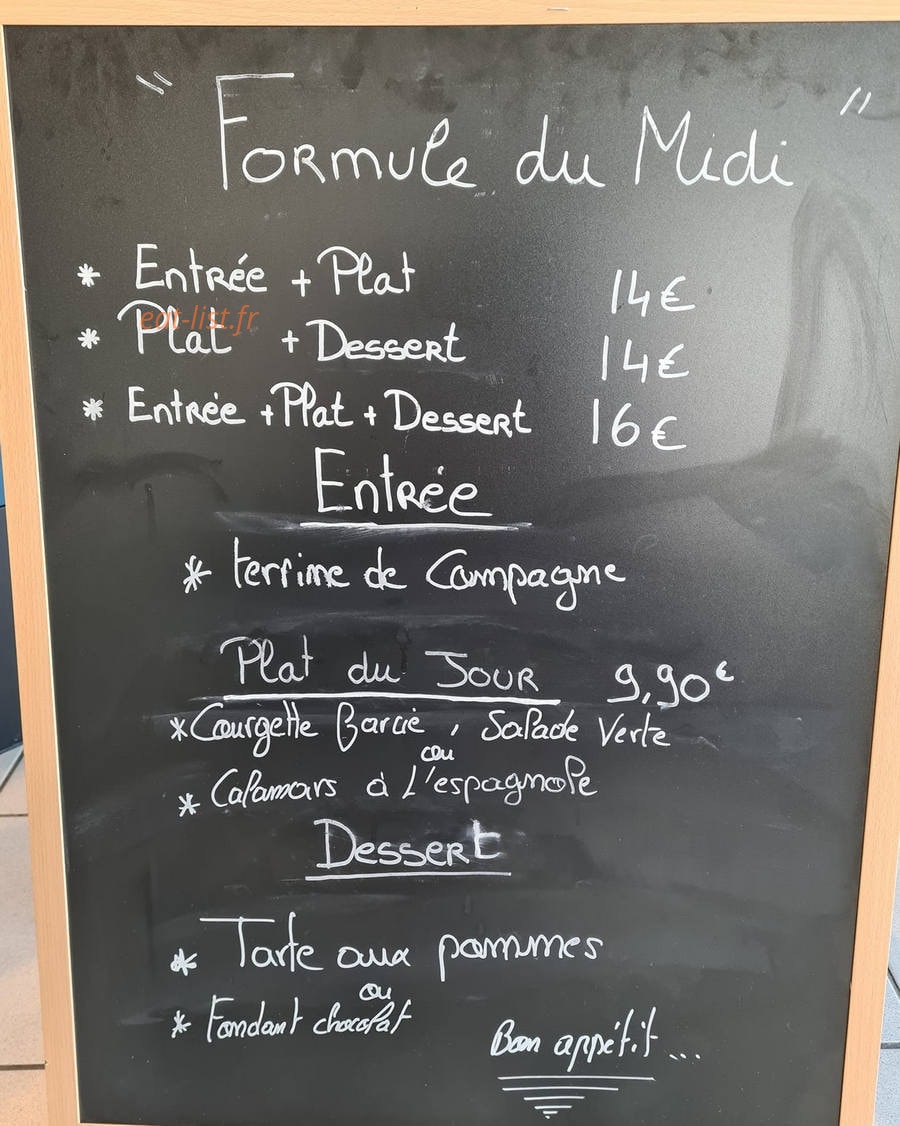 " Formule du Midi "
* Entrée + Plat 14€
eat-list.fr
* Plat + Dessert 14€
* Entrée + Plat + Dessert 16€
Entrée
* terrine de Campagne
Plat du Jour 9,90€
* Courgette Farcie, Salade Verte
ou
* Calamars à L'espagnole
Dessert
* Tarte aux pommes
ou
* Fondant chocolat
Bon appétit...